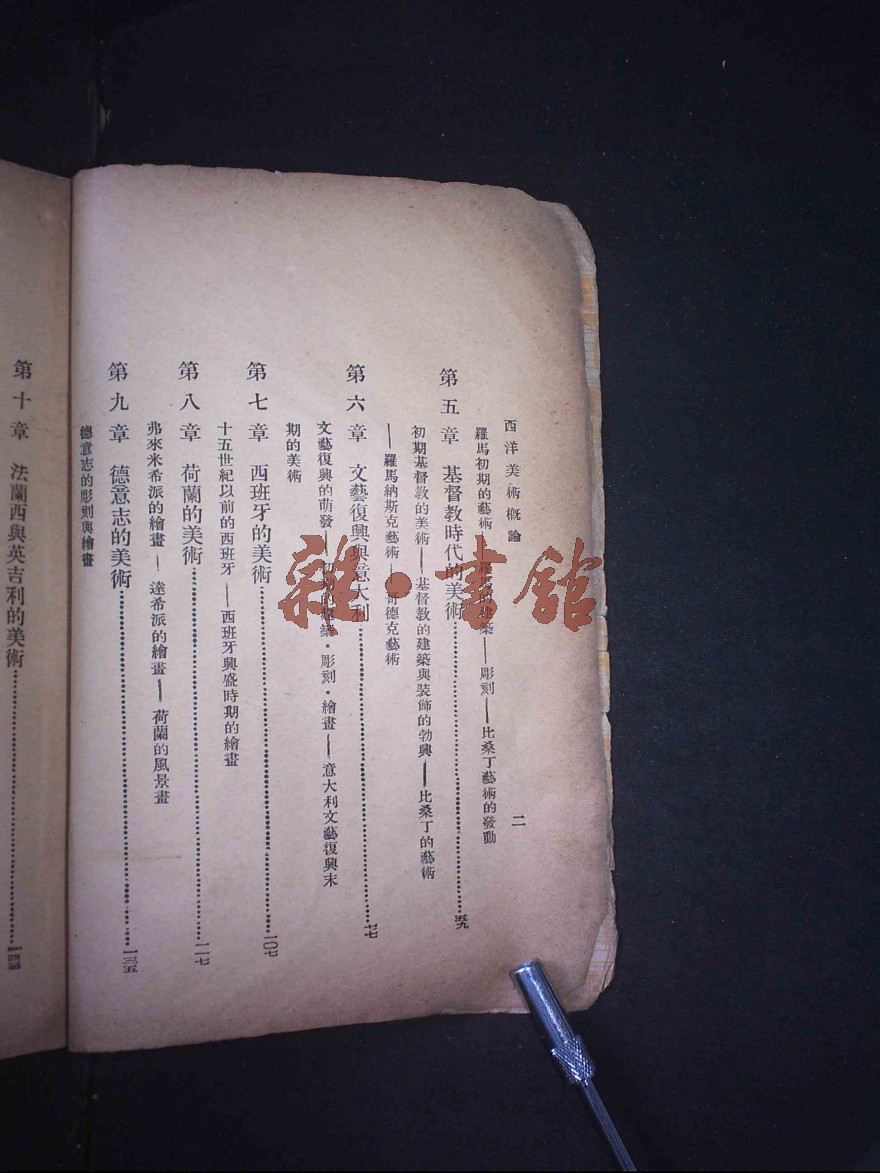 西洋美術概論
二
羅馬初期的藝術——羅馬的建築——彫刻——比桑丁藝術的發動
第五章 基督教時代的美術……五九
初期基督教的美術——基督教的建築與裝飾的勃興——比桑丁的藝術
——羅馬納斯克藝術——哥德克藝術
第六章 文藝復興與意大利……七七
文藝復興的萌發——初期的建築·彫刻·繪畫——意大利文藝復興末
期的美術
第七章 西班牙的美術……一〇七
十五世紀以前的西班牙——西班牙興盛時期的繪畫
第八章 荷蘭的美術……一一七
弗來米希派的繪畫——達希派的繪畫——荷蘭的風景畫
第九章 德意志的美術……一三五
德意志的彫刻與繪畫
第十章 法蘭西與英吉利的美術……
雜·書館